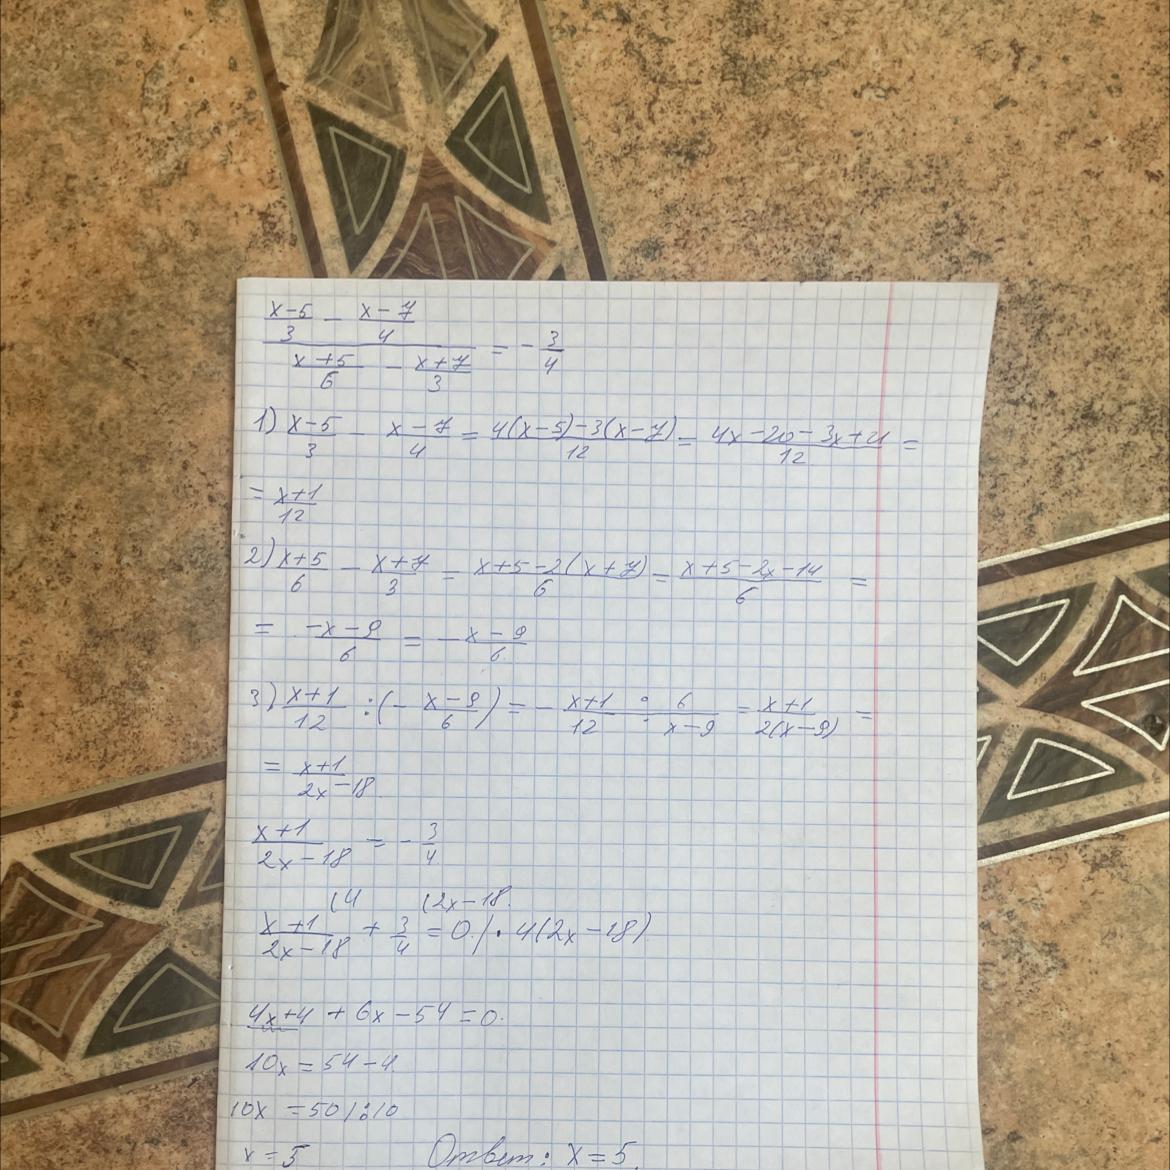 (x-5)/3 - (x-7)/4
——————— = -3/4
(x+5)/6 - (x+7)/3
1) (x-5)/3 - (x-7)/4 = (4(x-5)-3(x-7))/12 = (4x-20-3x+21)/12 =
= (x+1)/12
2) (x+5)/6 - (x+7)/3 = (x+5-2(x+7))/6 = (x+5-2x-14)/6 =
= (-x-9)/6 = -(x-9)/6
3) (x+1)/12 : (-(x-9)/6) = -(x+1)/12 : 6/(x-9) = (x+1)/(2(x-9)) =
= (x+1)/(2x-18)
(x+1)/(2x-18) = -3/4
(4 (2x-18.
(x+1)/(2x-18) + 3/4 = 0 /· 4(2x-18)
4x+4 + 6x-54=0.
10x=54-4.
10x =50/:10
x=5 Ответ: x=5.